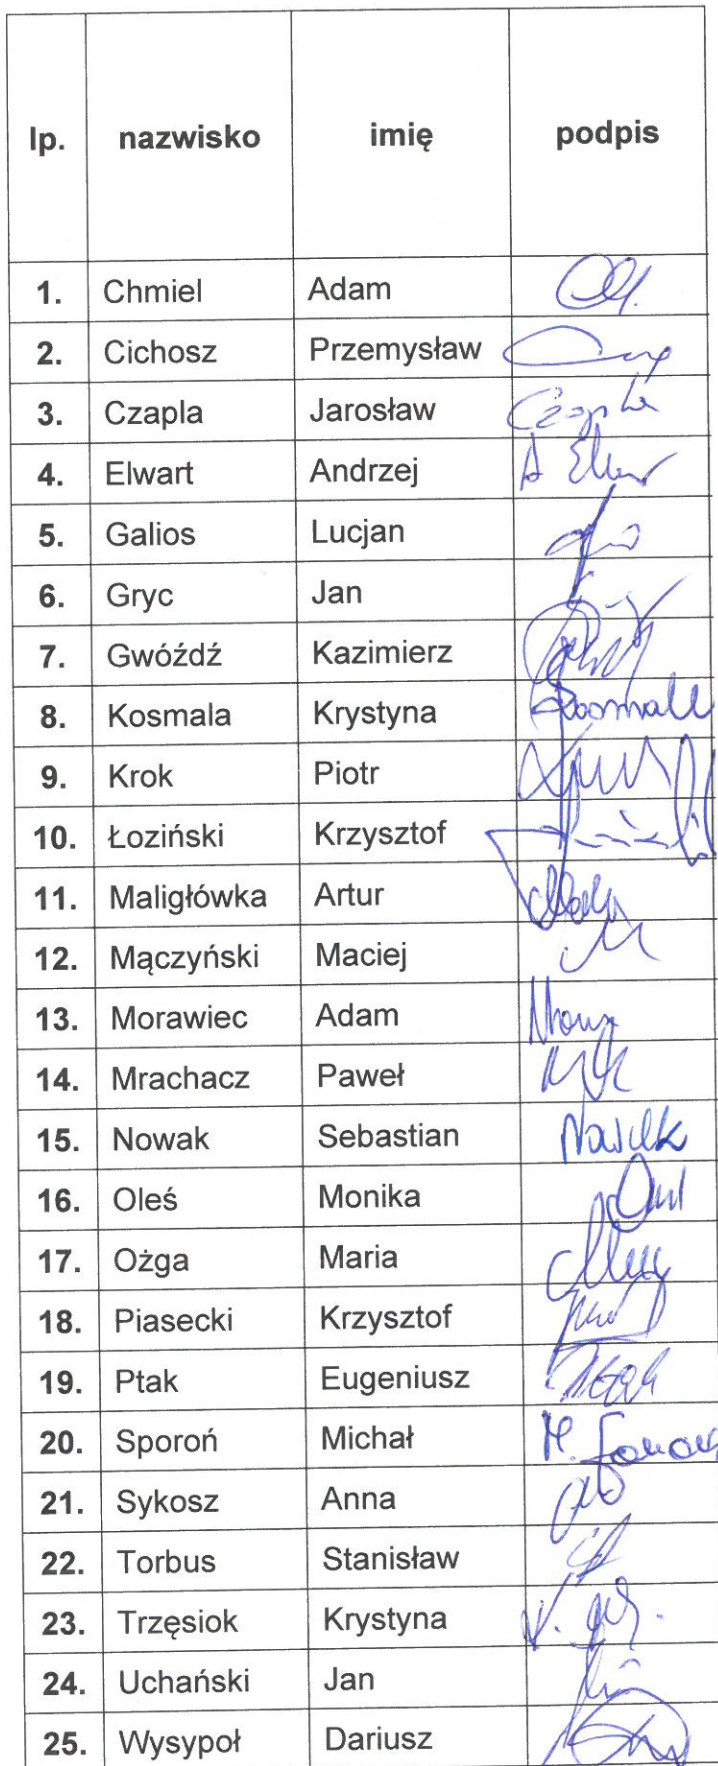 lp. nazwisko imię podpis
1. Chmiel Adam
2. Cichosz Przemysław
3. Czapla Jarosław Czapla
4. Elwart Andrzej
5. Galios Lucjan
6. Gryc Jan
7. Gwóźdź Kazimierz
8. Kosmala Krystyna
9. Krok Piotr
10. Łoziński Krzysztof
11. Maligłówka Artur
12. Mączyński Maciej
13. Morawiec Adam
14. Mrachacz Paweł
15. Nowak Sebastian
16. Oleś Monika
17. Ożga Maria
18. Piasecki Krzysztof
19. Ptak Eugeniusz
20. Sporoń Michał
21. Sykosz Anna
22. Torbus Stanisław
23. Trzęsiok Krystyna
24. Uchański Jan
25. Wysypoł Dariusz